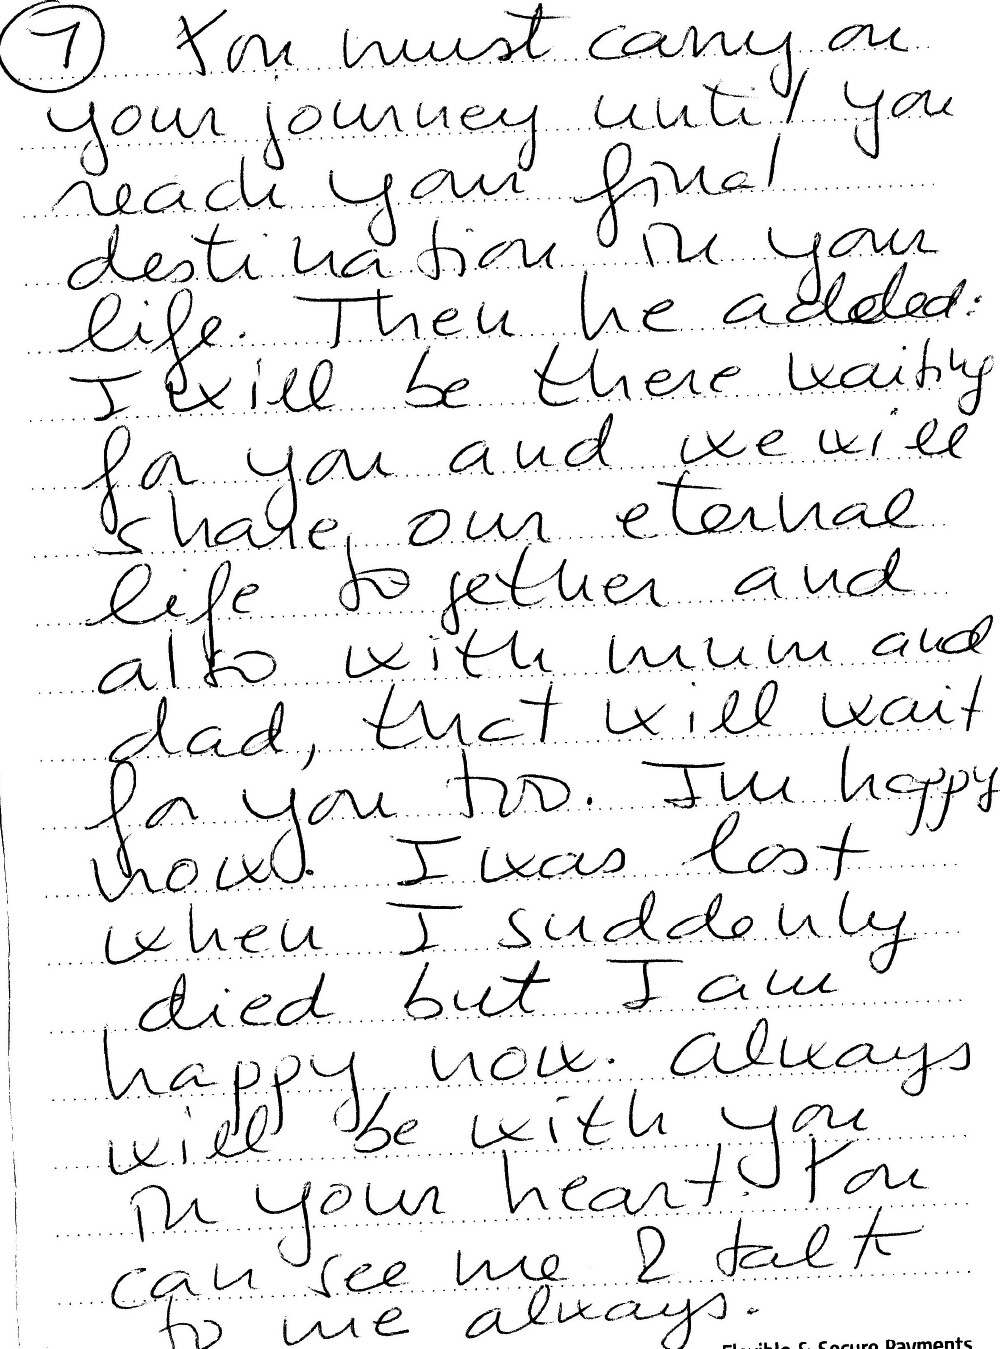 7 You must carry on
your journey until you
reach your final
destination in your
life. Then he added:
I will be there waiting
for you and we will
share our eternal
life together and
also with mum and
dad, that will wait
for you too. I'm happy
now. I was lost
when I suddenly
died but I am
happy now. Always
will be with you
in your heart. You
can see me & talk
to me always.
Flexible & Secure Payments